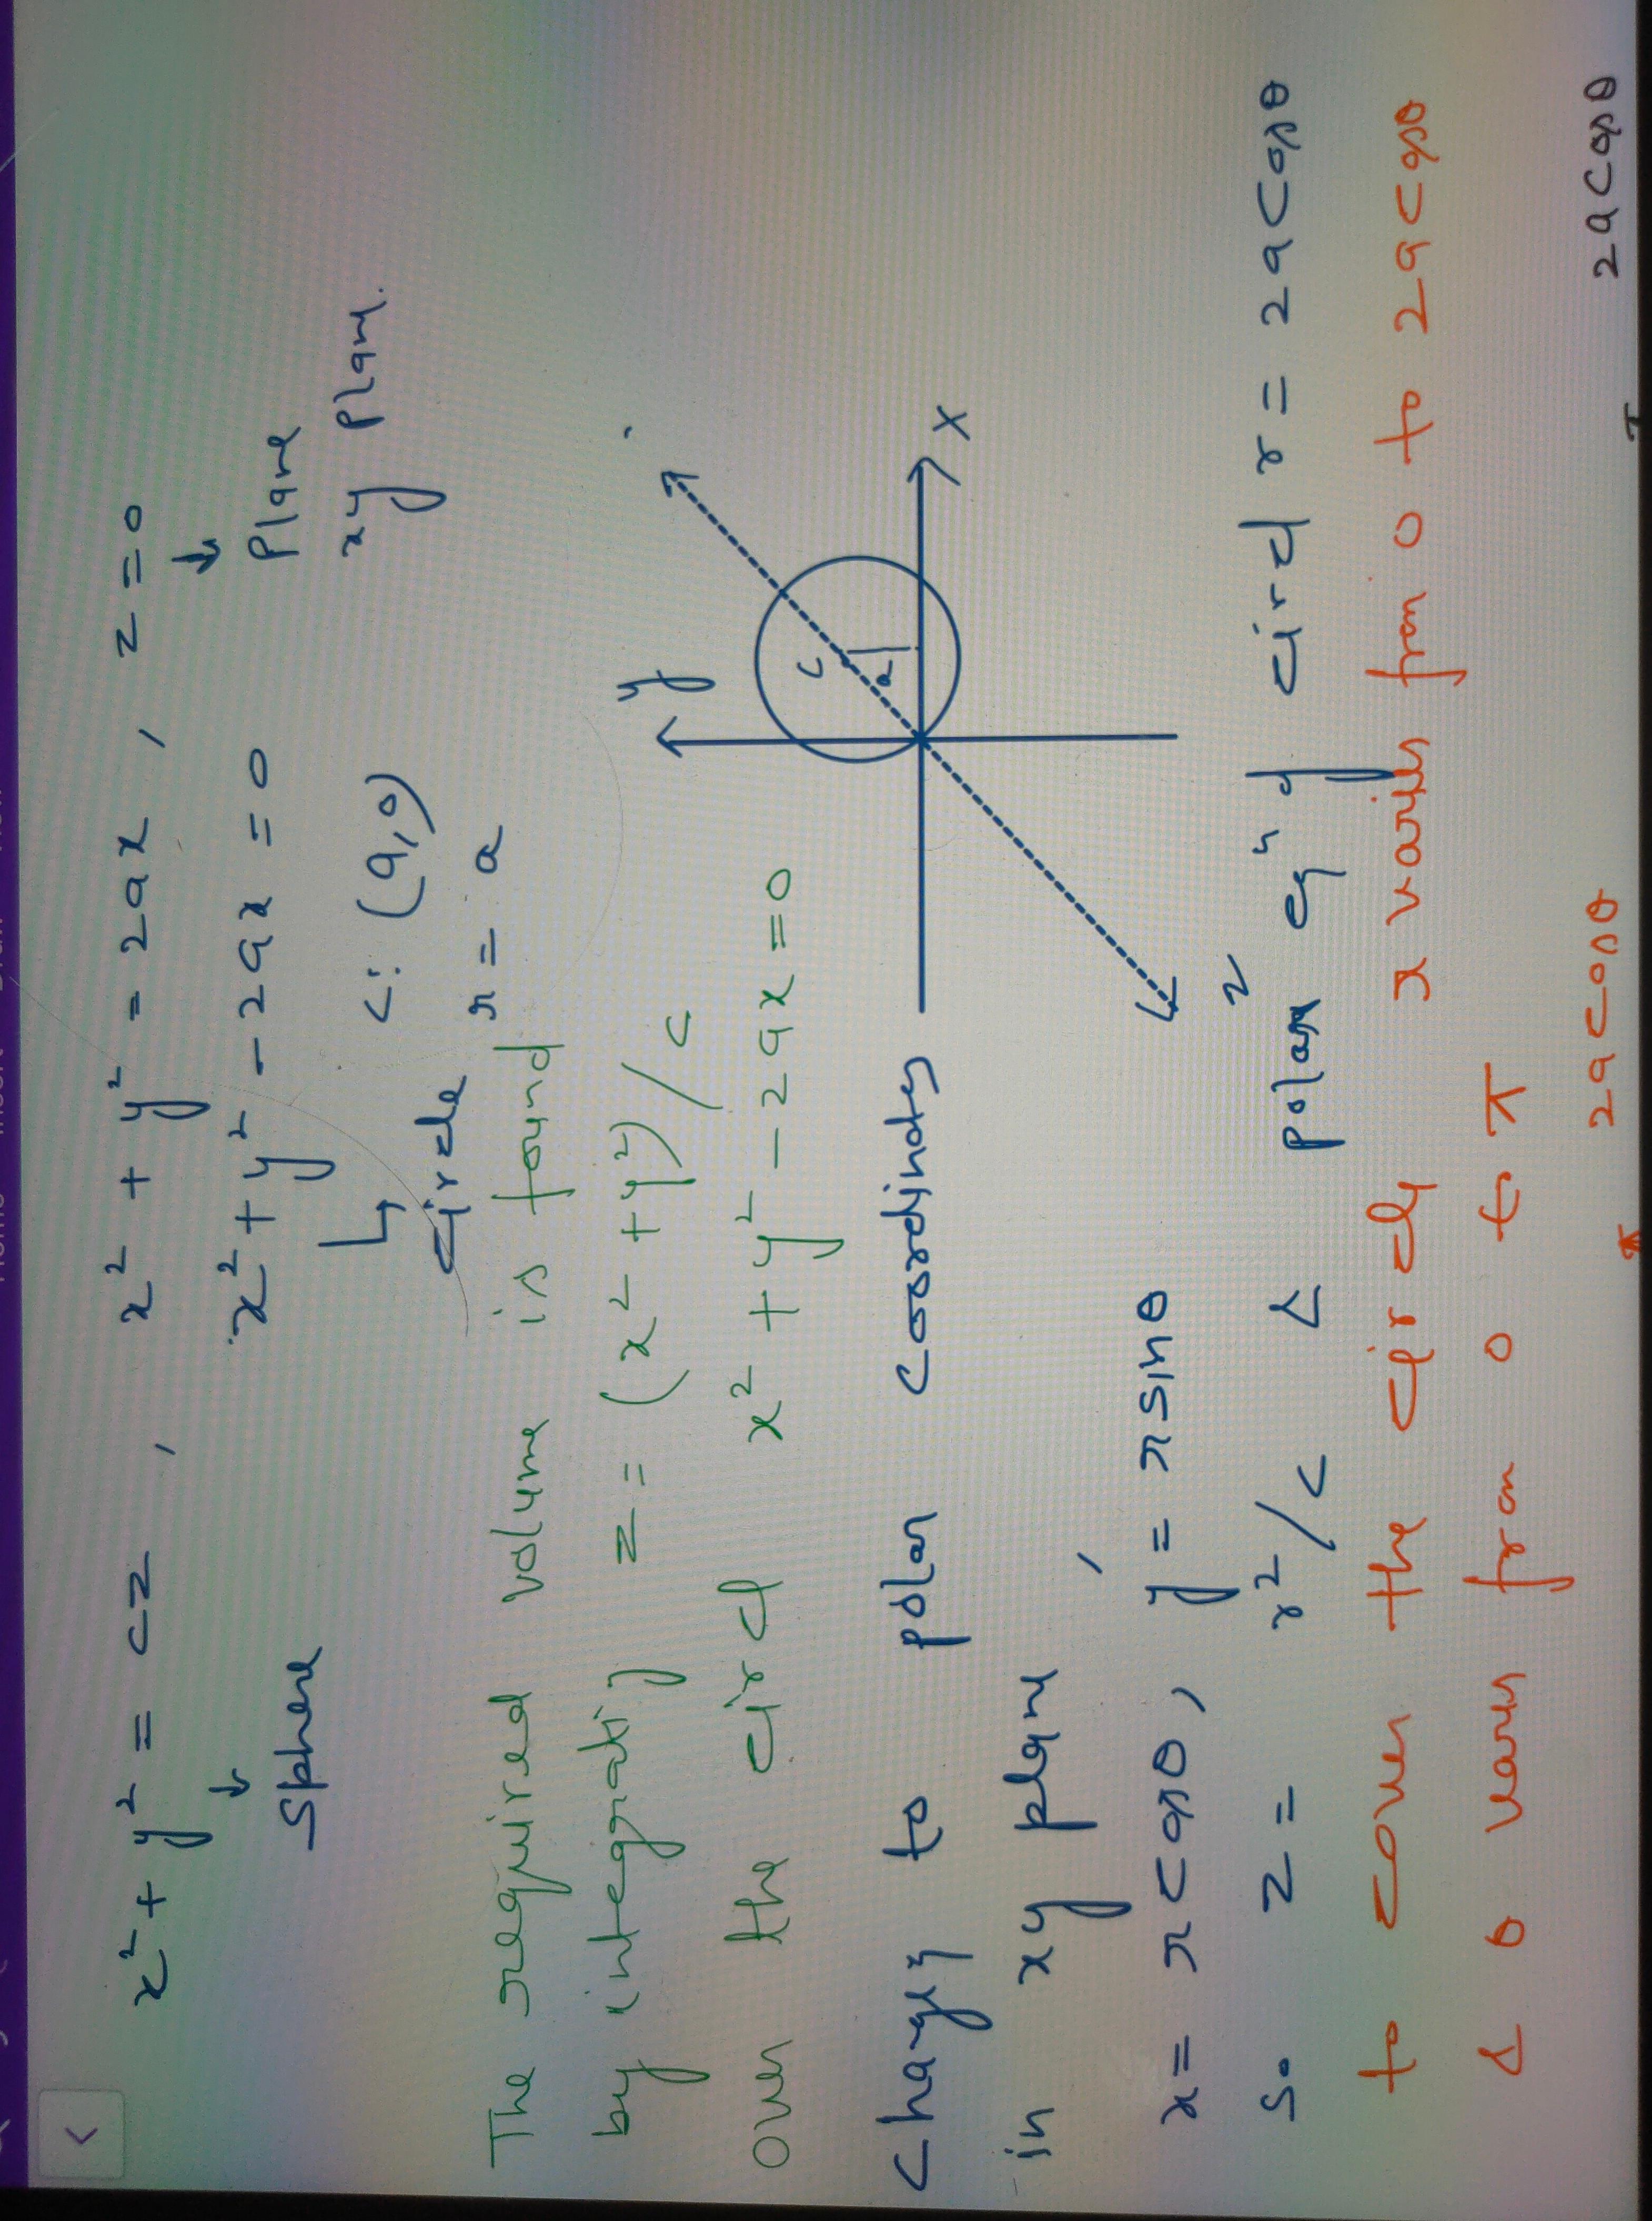 x² + y² = cz , x² + y² = 2ax , z = 0
↓ ↓
Sphere x² + y² - 2ax = 0 Plane
↳ xy plane.
circle c: (a,0)
r = a
The required volume is found
by integrating z = (x² + y²)/c
over the circl x² + y² - 2ax = 0
y
c
a
X
z
changing to polar coordinates
in xy plane ,
x = r cosθ, y = r sinθ
so z = r²/c & polar eqⁿ of circl r = 2a cosθ
to cover the circle r varies from 0 to 2a cosθ
& θ varies from 0 to π
2a cosθ 2a cosθ
π π